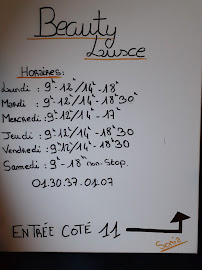 Beauty
Lusce
HORAIRES:
Lundi : 9h-12h/14h-18h
Mardi : 9h-12h/14h-18h30
Mercredi: 9h-12h/14h-17h
Jeudi : 9h12h/14h-18h30
Vendredi: 9h12h/14h-18h30
Samedi : 9h-18h non stop.
01.30.37.01.07
ENTRÉE COTÉ 11